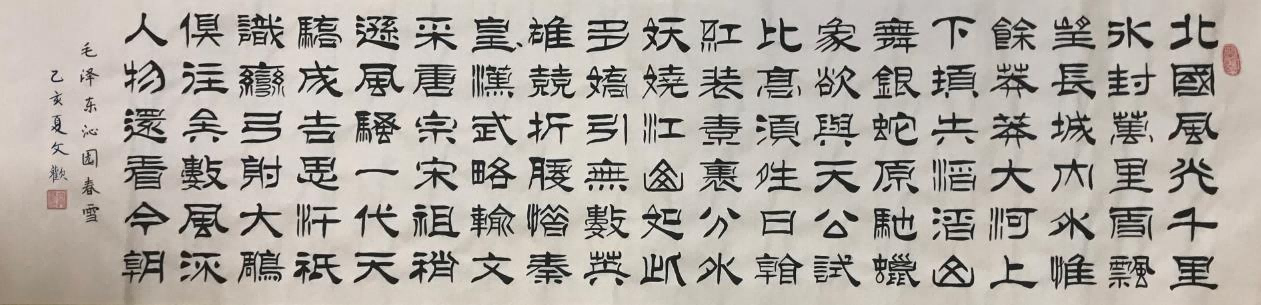 北國風光千里
冰封萬里雪飄
望長城內外惟
餘莽莽大河上
下頓失滔滔山
舞銀蛇原馳蠟
象欲與天公試
比高須夝日看
紅裝素裹分外
妖嬈江山如此
多嬌引無數英
雄競折腰惜秦
皇漢武略輸文
采唐宗宋祖稍
遜風騷一代天
驕成吉思汗祇
識彎弓射大鵰
俱往矣數風流
人物還看今朝
毛泽东沁园春雪
乙亥夏文歡